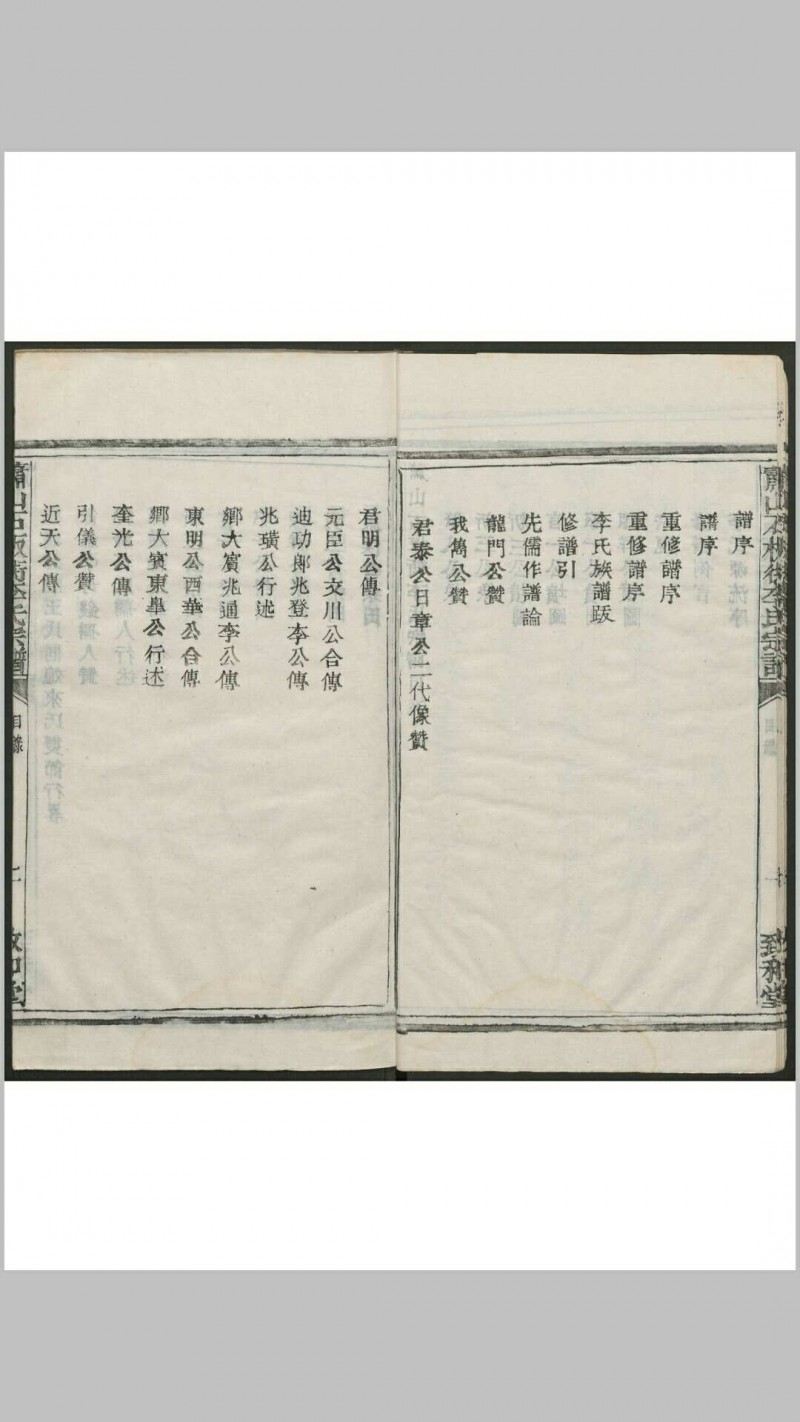 譜序
譜序
重修譜序
重修譜序
李氏族譜跋
修譜引
先儒作譜論
龍門公贊
我雋公贊
君泰公日章公二代像贊
致和堂
君明公傳
元臣公交川公合傳
迪功郎兆登李公傳
兆璜公行述
鄉大賓兆通李公傳
東明公西華公合傳
鄉大賓東臯公行述
奎光公傳
引儀公贊
近天公傳
目錄